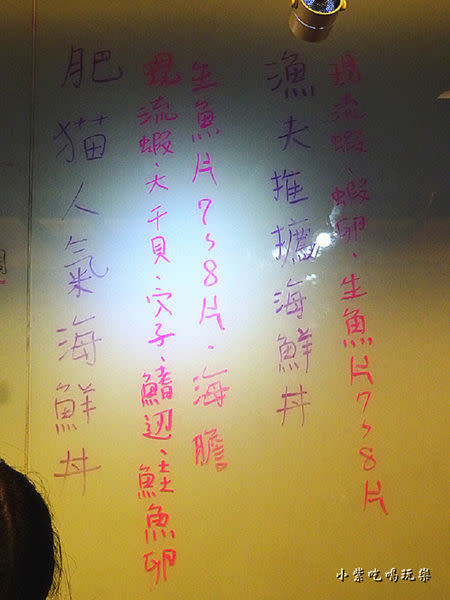 肥猫人氣海鮮丼
現流蝦、大干貝、穴子、鰭辺、鮭魚卵
生魚片7~8片、海膽
漁夫推海鮮丼
現流蝦、蝦卵、生魚片7~8片
小紫吃喝玩樂